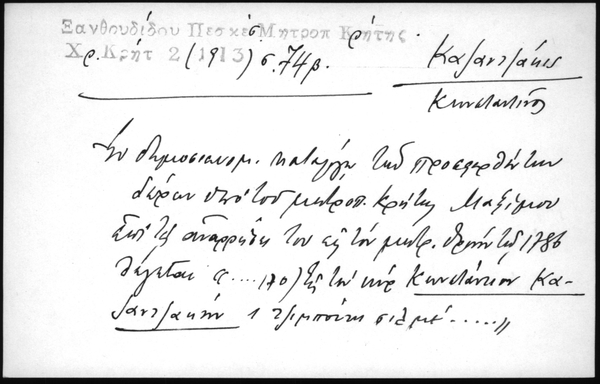 Ξανθουδίδου Πεσκέσ Μητροπ Κρήτης
Χρ. Κρήτ 2 (1913) σ. 74 β.
Καζαντζάκις
Κωνσταντῖνος
Ἐν δημοσιευομ. καταλόγῳ τῶν προσφερθέντων
δώρων ὑπὸ τοῦ μητροπ. Κρήτης Μαξίμου
ἐπὶ τῇ ἀναρρήσει του εἰς τὸν μητρ. θρόνον τῷ 1786
λέγεται " .... 170) ἐξ τὸν κὺρ Κωνσταντῖνον Κα-
ζαντζάκην 1 τζιμπούκι σιλμέ ......"